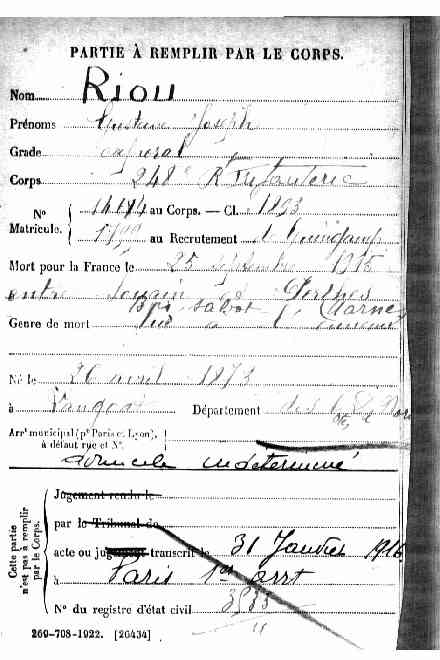 PARTIE À REMPLIR PAR LE CORPS.
Nom RIOU
Prénoms Gustave Joseph
Grade caporal
Corps 248e R Infanterie
No Matricule. { 14194 au Corps. — Cl. 1893
au Recrutement Guingamp
Mort pour la France le 25 septembre 1915
entre Souain & Perthes
Marne
Genre de mort Tué à l'ennemi
Né le 26 avril 1873
à Département des
Arrt municipal (pr Paris et Lyon), à défaut rue et No.
domicile indéterminé
Cette partie n'est pas à remplir par le Corps.
Jugement rendu le
par le Tribunal de
acte ou jugement transcrit le 31 Janvier 1916
à Paris 1er arrt
No du registre d'état civil
269-708-1922. [26434]